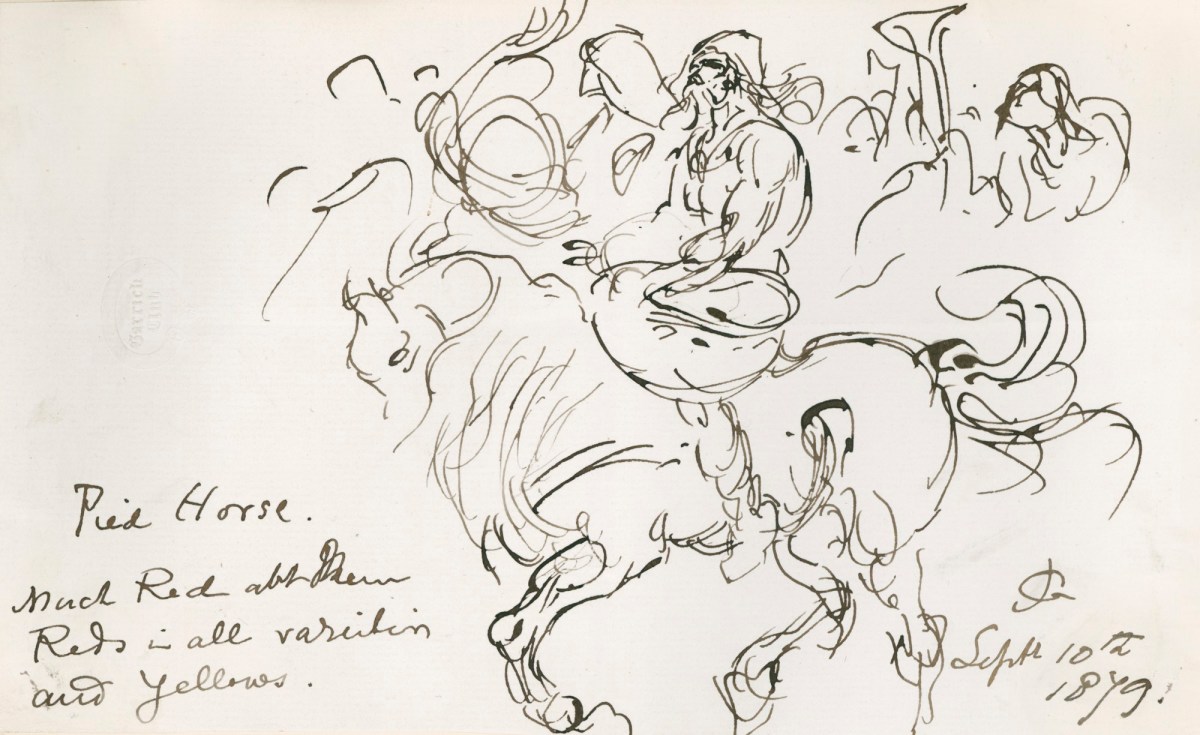 Garrick
Club
Pied Horse.
Much Red abt them
Reds in all variation
and Yellows.
JG
Sept 10th
1879.